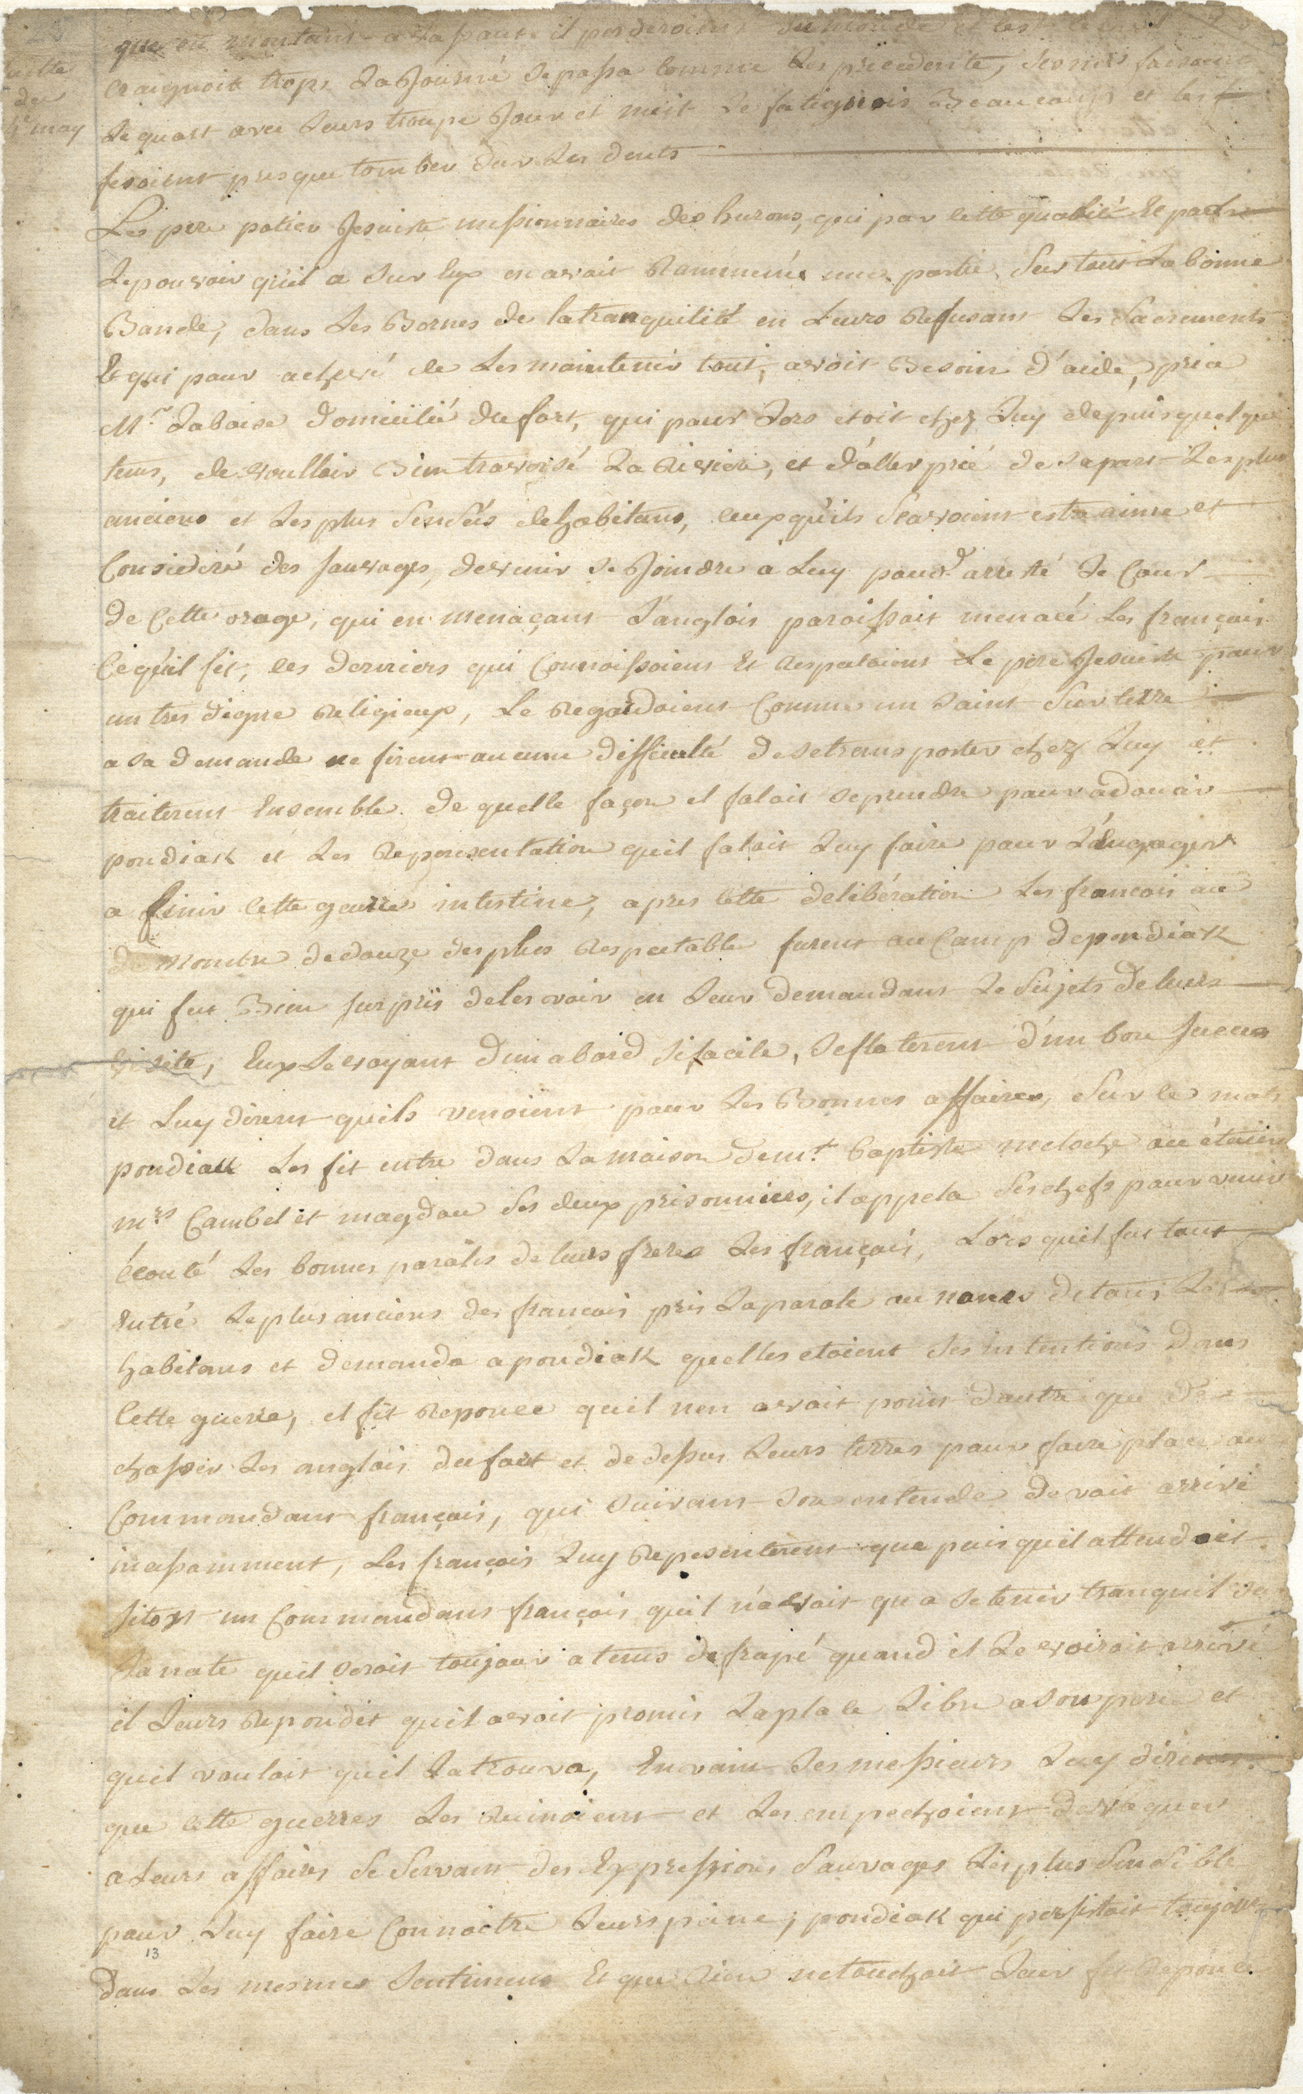 que en montant a Lasaut il perderoient du monde et les
craignoit trops La Journé se passa Comme Les precedente,
Suitte
du
may
Le quart avec Leurs troupe Jour et nuit Le fatiguois Beaucoups et les
fesoient presque tomber sur Les dents
Le pere potier Jesuiste missionnaires des hurons, qui par cette qualité Et par
Le pouvoir qu'il a sur Eux en avoit Rammené une partie, Sur tout La bonne
Bande, dans Les Bornes de la tranquilité en Leurs Refusant Les Sacrements
Et qui pour achevé de Les maintenir tout, avoit Besoin d'aide, pria
Mr Labaise domicilié du fort, qui pour Lors etoit chez Luy depuis quelque
tems, de voulloir Bien traversé La Riviere, et d'aller prié de sa part Les plus
anciens et Les plus Sensés dehabitans, ceux qu'ils Scavoient estre aimé et
Consideré des Sauvages, de venir se Joindre a Luy pour arresté Le Cour
de Cette orage, qui en menaçant L'anglois paroissoit menacé Les françois
Ce qu'il fit, ces derniers qui Connoissoient Et Respectoient Le pere Jesuiste pour
un tres digne Religieux, Le Regardoient Comme un Saint Sur terre
a sa demande ne firent aucune difficulté de se transporter chez Luy et
traiterent Ensemble de quelle façon il faloit se prendre pour adoucir
pondiak et Les Representation qu'il faloit Luy faire pour L'Engager
a finir Cette guerre intestine, apres cette deliberation Les francois au
nombre de douze des plus Respectable furent au Camp de pondiak
qui fut Bien surpris de les voir en Leur demandant Le Sujets de leurs
visite, Eux Le voyant d'un abord si facile, se flaterent d'un bon succes
et Luy dirent quils venoient pour Les Bonnes affaires, Sur ce mots
pondiak Les fit entre dans La maison de mr. Baptiste meloche ou étoient
mrs Cambel et magdou Ses deux prisonniers, il appela Ses chefs pour venir
écouté Les bonnes paroles de leurs freres Les françois, Lors quil fut tout
Entré Le plus anciens des francois pris La parole au noms de tous Les
habitans et demanda a pondiak quelles etoient Ses intentions dans
Cette guerre, il fit Reponce quil nen avoit point d'autre que de
chasser Les anglois du fort et de dessus Leurs terres pour faire place au
Commandant françois, qui Suivant Son entende devoit arrivé
incessamment, Les françois Luy Representerent que puis quil attendoit
sitost un Commandant françois quil n'avoit qu a se tenir tranquil sur
Sa nate quil seroit toujour a tems de frapé quand il Le voiroit arrivé
il Leurs Repondit quil avoit promis La place Libre a son pere et
quil vouloit quil La trouva, En vain Ses messieurs Luy dirent
que cette guerres Les Ruinoient et Les empechoient de vaquer
a Leurs affaires se Servant des Expressions Sauvages Les plus Sensible
pour Luy faire Connoitre Leurs peine; pondiak qui persistoit toujour
13
dans Les mesmes Sentimens Et que Rien ne touchoit Leur fit Reponce